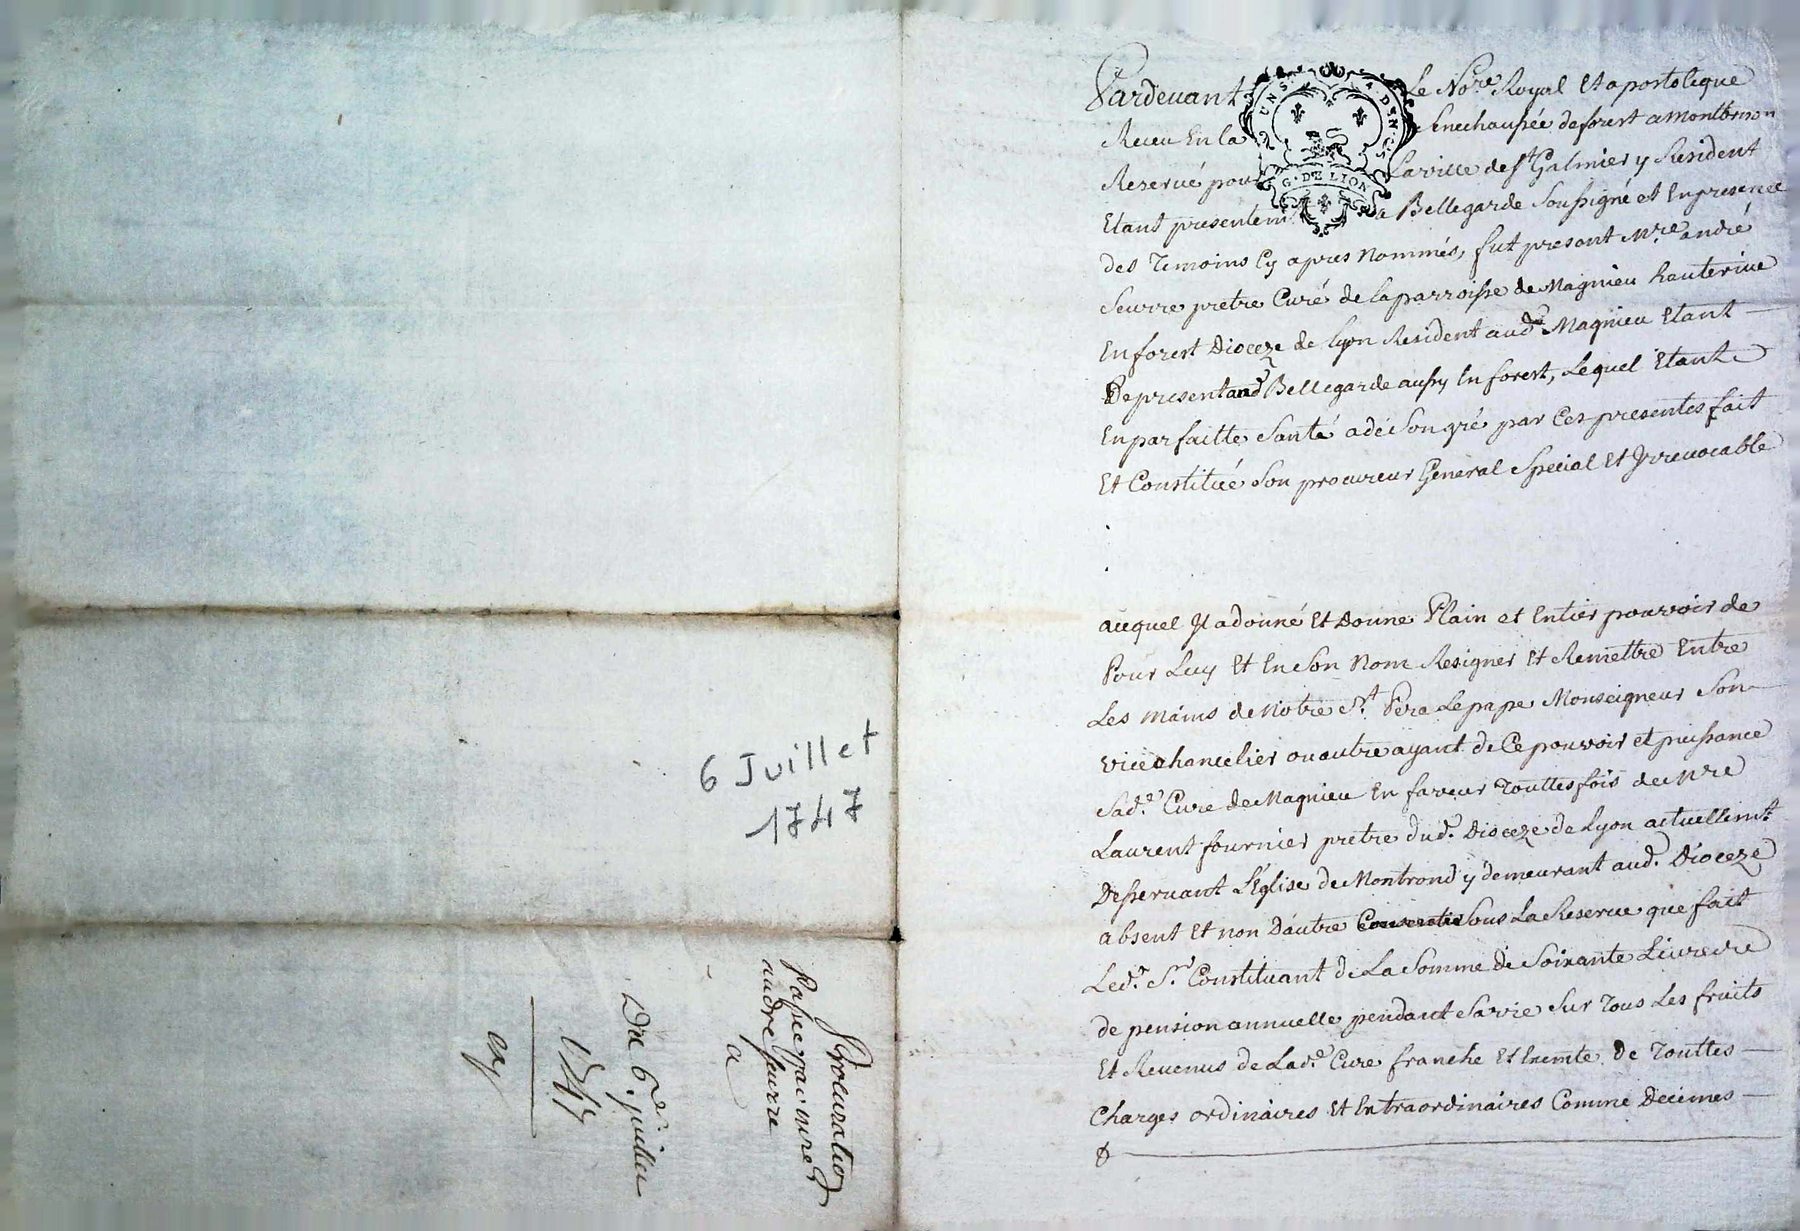 Pardevant Le No.re Royal Et apostolique
Receu En la Senechaussée de forest a Montbrison
Reservé pour La ville de St Galmier y Resident
Etant presentem.t a Bellegarde Soussigné et En presence
des Temoins Cy apres Nommés, fut present M.re andré
Seurre pretre Curé de la parroisse de Magnieu hauterive
En forest Dioceze de Lyon Resident aud. Magnieu Etant
De present aud. Bellegarde aussy En forest, Lequel Etant
En parfaitte Santé a dé Son gré par Ces presentes fait
Et Constitué Son procureur General Special Et Yrrevocable
auquel Yl a donné Et Donne Plain et Entier pouvoir de
Pour Luy Et En Son Nom Resigner Et Remettre Entre
Les Mains de Notre St. Pere Le pape Monseigneur Son
vice chancelier ou autre ayant de Ce pouvoir et puissance
Sad.e Cure de Magnieu En faveur Touttes fois de M.re
Laurent fournier pretre dud. Dioceze de Lyon actuellem.t
Desservant L'Eglise de Montrond y demeurant aud. Dioceze
absent Et non D'autre Sous La Reserve que fait
Led. Sr. Constituant de La Somme de Soixante Livres
de pension annuelle pendant Sa vie Sur Tous Les fruits
Et Revenus de Lad.e Cure franche Et Exemte de Touttes
Charges ordinaires Et Extraordinaires Comme Decimes
G. DE LION
6 Juillet
1747
Procuration
Passee par mre
andre Seurre
a
Du 6e. juillet
1747